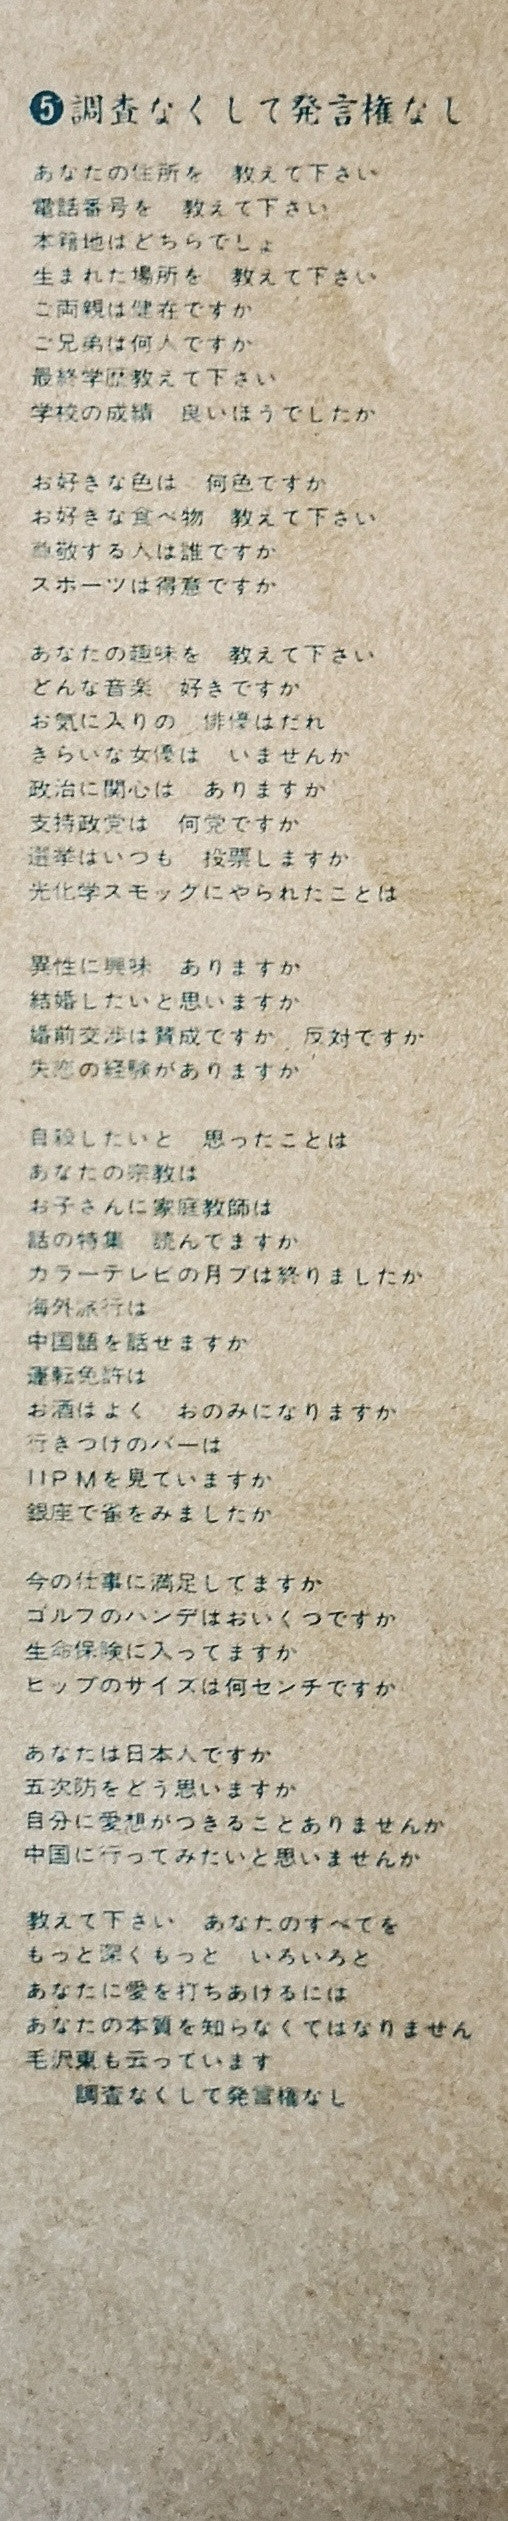 ❺調査なくして発言権なし
あなたの住所を　教えて下さい
電話番号を　教えて下さい
本籍地はどちらでしょ
生まれた場所を　教えて下さい
ご両親は健在ですか
ご兄弟は何人ですか
最終学歴教えて下さい
学校の成績　良いほうでしたか
お好きな色は　何色ですか
お好きな食べ物　教えて下さい
尊敬する人は誰ですか
スポーツは得意ですか
あなたの趣味を　教えて下さい
どんな音楽　好きですか
お気に入りの　俳優はだれ
きらいな女優は　いませんか
政治に関心は　ありますか
支持政党は　何党ですか
選挙はいつも　投票しますか
光化学スモッグにやられたことは
異性に興味　ありますか
結婚したいと思いますか
婚前交渉は賛成ですか　反対ですか
失恋の経験がありますか
自殺したいと　思ったことは
あなたの宗教は
お子さんに家庭教師は
話の特集　読んでますか
カラーテレビの月プは終りましたか
海外旅行は
中国語を話せますか
運転免許は
お酒はよく　おのみになりますか
行きつけのバーは
11PMを見ていますか
銀座で雀をみましたか
今の仕事に満足してますか
ゴルフのハンデはおいくつですか
生命保険に入ってますか
ヒップのサイズは何センチですか
あなたは日本人ですか
五次防をどう思いますか
自分に愛想がつきることありませんか
中国に行ってみたいと思いませんか
教えて下さい　あなたのすべてを
もっと深くもっと　いろいろと
あなたに愛を打ちあけるには
あなたの本質を知らなくてはなりません
毛沢東も云っています
調査なくして発言権なし